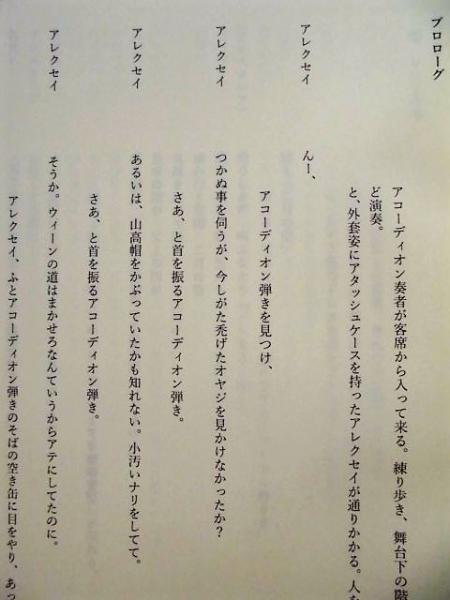 プロローグ
アコーディオン奏者が客席から入って来る。練り歩き、舞台下の階
ど演奏。
と、外套姿にアタッシュケースを持ったアレクセイが通りかかる。人を
アレクセイ　んー、
アコーディオン弾きを見つけ、
アレクセイ　つかぬ事を伺うが、今しがた禿げたオヤジを見かけなかったか?
さあ、と首を振るアコーディオン弾き。
アレクセイ　あるいは、山高帽をかぶっていたかも知れない。小汚いナリをしてて。
さあ、と首を振るアコーディオン弾き。
アレクセイ　そうか。ウィーンの道はまかせろなんていうからアテにしてたのに。
アレクセイ、ふとアコーディオン弾きのそばの空き缶に目をやり、あっ